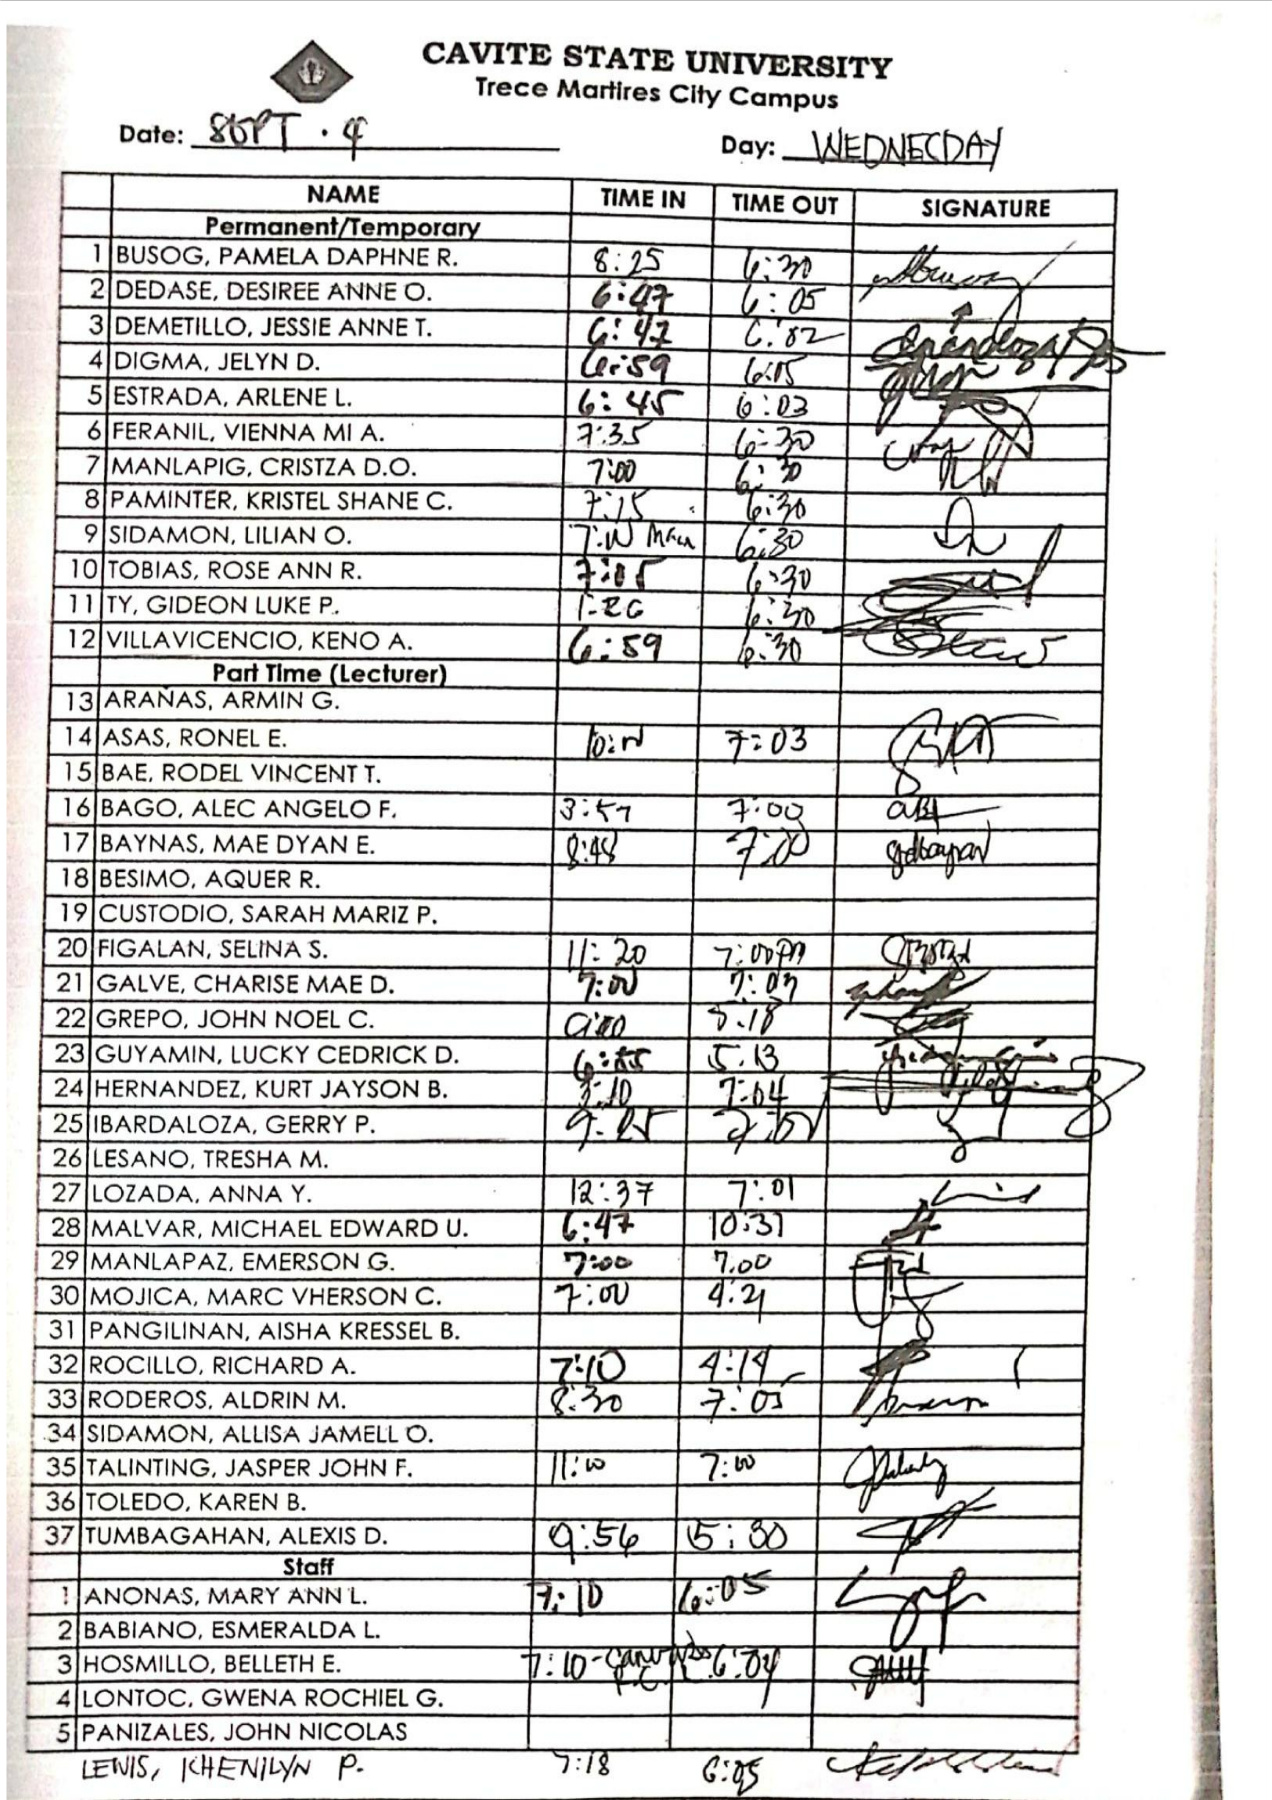 CAVITE STATE UNIVERSITY
Trece Martires City Campus
Date: SEPT. 4 Day: WEDNECDAY
NAME TIME IN TIME OUT SIGNATURE
Permanent/Temporary
1 BUSOG, PAMELA DAPHNE R. 8:25 6:30
2 DEDASE, DESIREE ANNE O. 6:47 6:05
3 DEMETILLO, JESSIE ANNE T. 6:47 6:02
4 DIGMA, JELYN D. 6:59 6:05
5 ESTRADA, ARLENE L. 6:45 6:03
6 FERANIL, VIENNA MI A. 7:35 6:30
7 MANLAPIG, CRISTZA D.O. 7:00 6:30
8 PAMINTER, KRISTEL SHANE C. 7:15 6:30
9 SIDAMON, LILIAN O. 6:30
10 TOBIAS, ROSE ANN R. 7:05 6:30
11 TY, GIDEON LUKE P. 6:30
12 VILLAVICENCIO, KENO A. 6:59 6:30
Part Time (Lecturer)
13 ARAÑAS, ARMIN G.
14 ASAS, RONEL E. 7:03
15 BAE, RODEL VINCENT T.
16 BAGO, ALEC ANGELO F. 3:57 7:00
17 BAYNAS, MAE DYAN E. 8:48 7:00
18 BESIMO, AQUER R.
19 CUSTODIO, SARAH MARIZ P.
20 FIGALAN, SELINA S. 11:20 7:00PM
21 GALVE, CHARISE MAE D. 7:00 7:03
22 GREPO, JOHN NOEL C.
23 GUYAMIN, LUCKY CEDRICK D. 6:55 5:13
24 HERNANDEZ, KURT JAYSON B. 3:10 7:04
25 IBARDALOZA, GERRY P. 9:25
26 LESANO, TRESHA M.
27 LOZADA, ANNA Y. 12:37 7:01
28 MALVAR, MICHAEL EDWARD U. 6:47 10:31
29 MANLAPAZ, EMERSON G. 7:00 7:00
30 MOJICA, MARC VHERSON C. 7:00 4:21
31 PANGILINAN, AISHA KRESSEL B.
32 ROCILLO, RICHARD A. 7:10 4:14
33 RODEROS, ALDRIN M. 8:30 7:05
34 SIDAMON, ALLISA JAMELL O.
35 TALINTING, JASPER JOHN F. 11:00 7:00
36 TOLEDO, KAREN B.
37 TUMBAGAHAN, ALEXIS D. 9:56 5:30
Staff
1 ANONAS, MARY ANN L. 7:10 6:05
2 BABIANO, ESMERALDA L.
3 HOSMILLO, BELLETH E. 7:10 6:04
4 LONTOC, GWENA ROCHIEL G.
5 PANIZALES, JOHN NICOLAS
LEWIS, KHENILYN P. 7:18 6:05